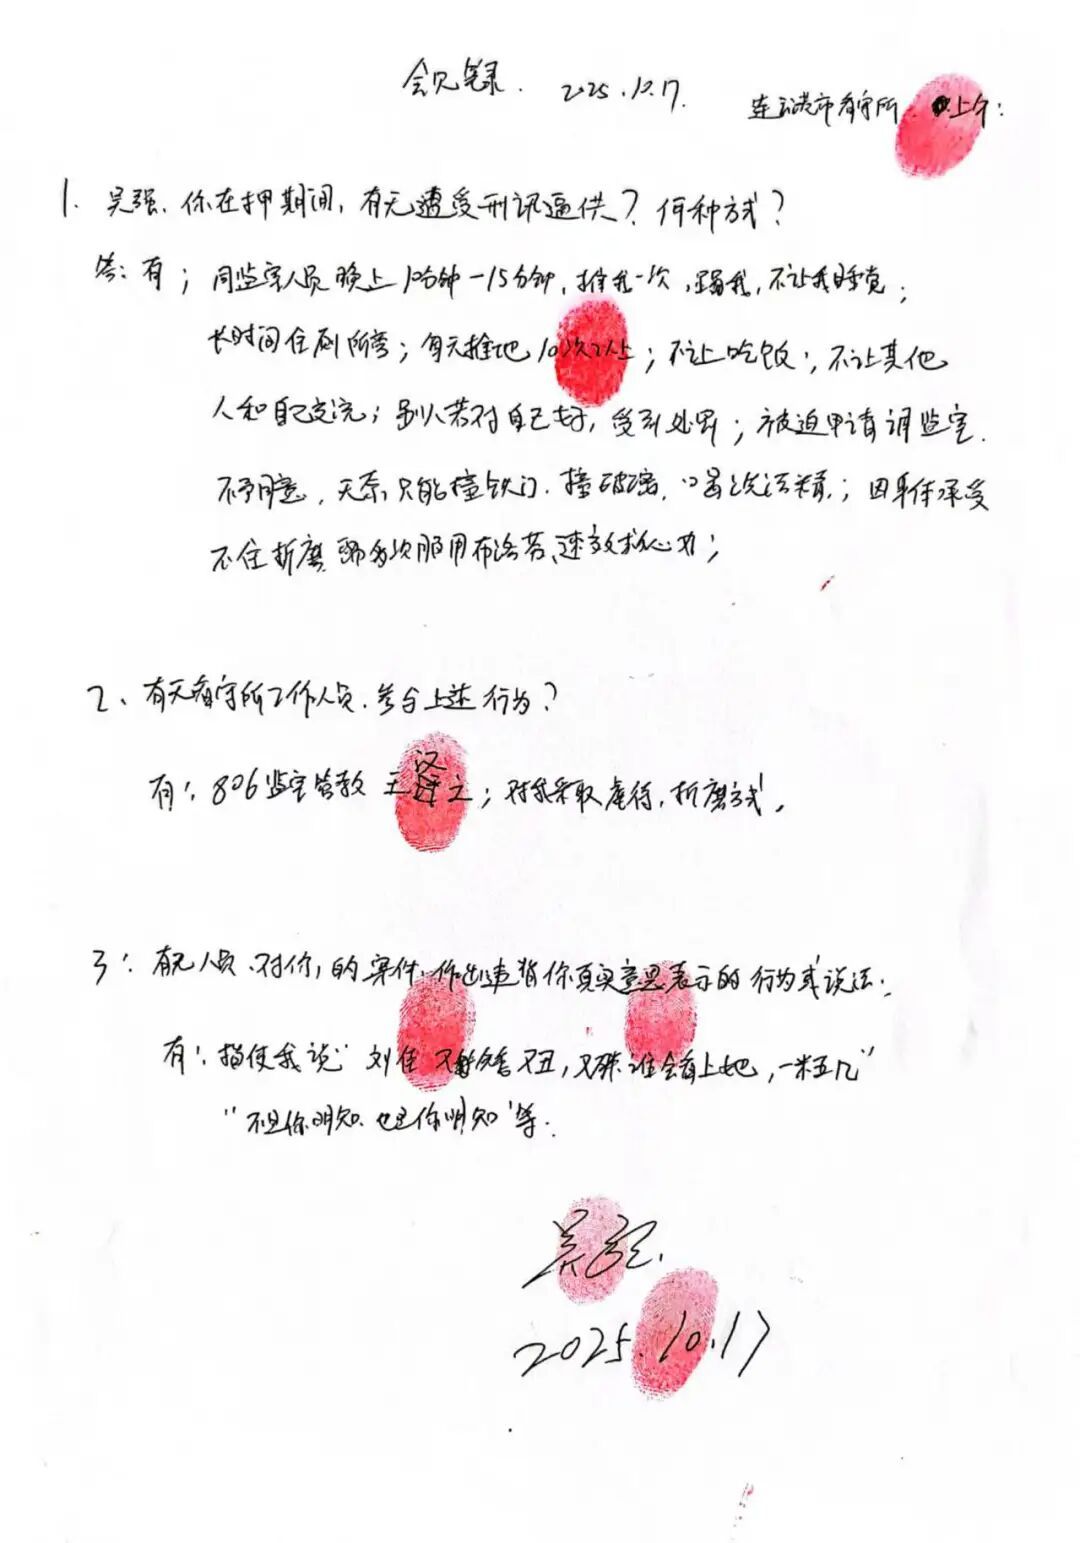 会见笔录. 2025.10.17.
连云港市看守所 上午:
1. 吴强、你在押期间,有无遭受刑讯逼供?何种方式?
答:有;同监室人员晚上10分钟-15分钟,推我一次,踢我,不让我睡觉;
长时间住厕所旁;每天推他10次以上;不让吃饭;不让其他
人和自己交流;别人若对自己好,受到处罚;被迫申请调监室.
不予同意,无奈只能撞铁门、撞玻璃,;因身体承受
不住折磨 多次服用布洛芬、速效救心丸;
2、有无看守所工作人员.参与上述行为?
有:806监室管教王汉之;对我采取虐待,折磨方式.
3:有无人员、对你的案件,作出违背你真实意思表示的行为或说法.
有:指使我说"刘佳 又矮又丑,又胖谁会看上她,一米五几"
"不是你明知也是你明知"等.
吴强.
2025.10.17